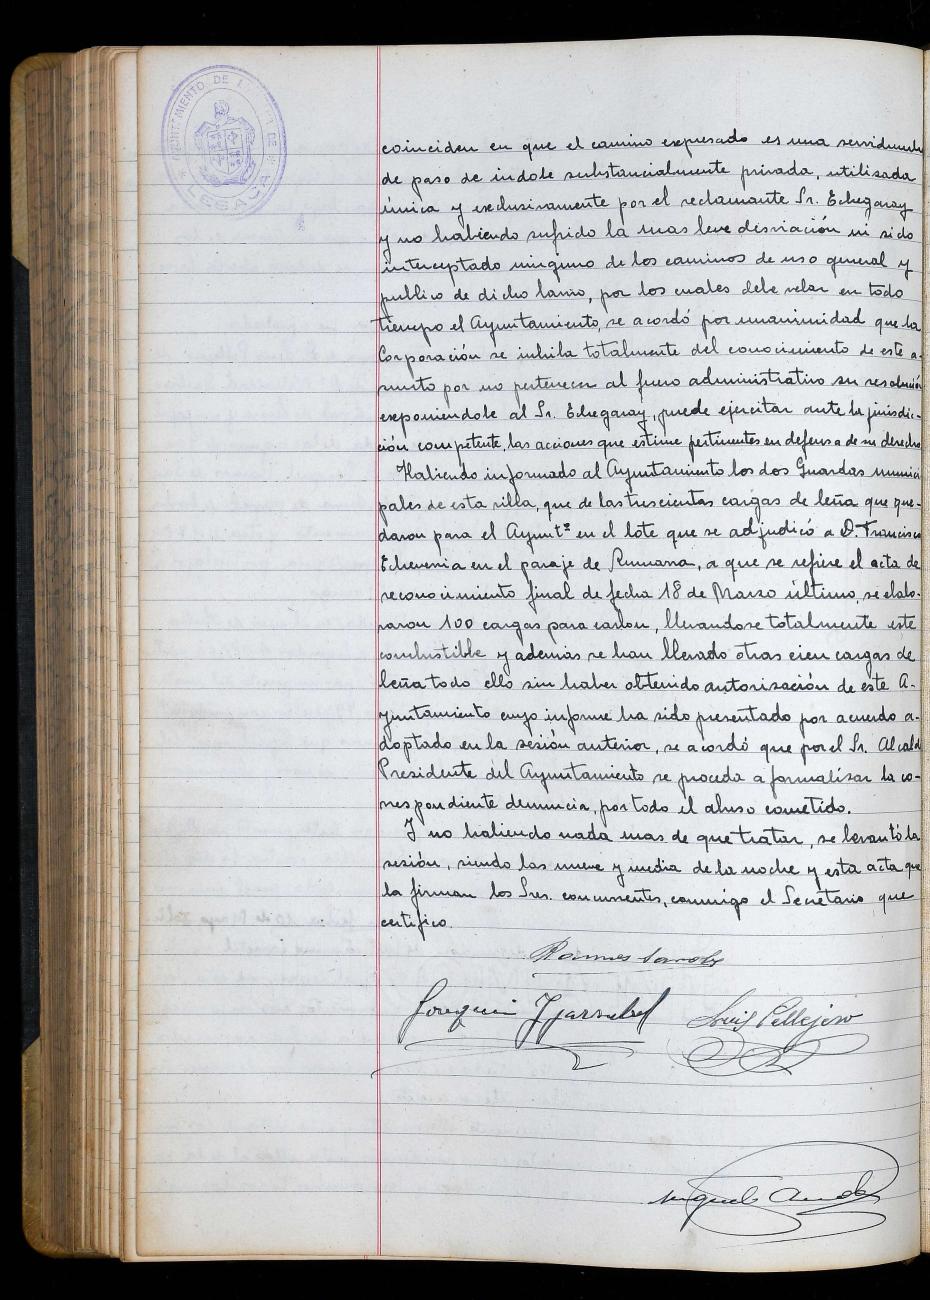 AYUNTAMIENTO DE LA DE
LESACA
coinciden en que el camino expresado es una servidumbre
de paso de indole substancialmente privada, utilizada
única y exclusivamente por el reclamante Sr. Echegaray
y no habiendo sufrido la mas leve desviación ni sido
interceptado ninguno de los caminos de uso general y
publico de dicho barrio, por los cuales debe velar en todo
tiempo el Ayuntamiento, se acordó por unanimidad que la
Corporación se inhiba totalmente del conocimiento de este a-
sunto por no pertenecer al fuero administrativo su resolución
exponiendole al Sr. Echegaray, puede ejercitar ante la jurisdic-
ción competente, las acciones que estime pertinentes en defensa de su derecho
Habiendo informado al Ayuntamiento los dos Guardas munici
pales de esta villa, que de las trescientas cargas de leña que que-
daron para el Ayuntº en el lote que se adjudicó a D. Francisco
Echeverria en el paraje de, a que se refiere el acta de
reconocimiento final de fecha 18 de Marzo último, se elabo-
raron 100 cargas para carbon, llevandose totalmente este
combustible y además se han llevado otras cien cargas de
leña todo ello sin haber obtenido autorización de este A-
yuntamiento cuyo informe ha sido presentado por acuerdo a-
doptado en la sesión anterior, se acordó que por el Sr. Alcalde
Presidente del Ayuntamiento se proceda a formalizar la co-
rrespondiente denuncia, por todo el abuso cometido.
Y no habiendo nada mas de que tratar, se levantó la
sesión, siendo las nueve y media de la noche y esta acta que
la firman los Sres. concurrentes, conmigo el Secretario que
certifico.
Joaquin
Luis Pellejero